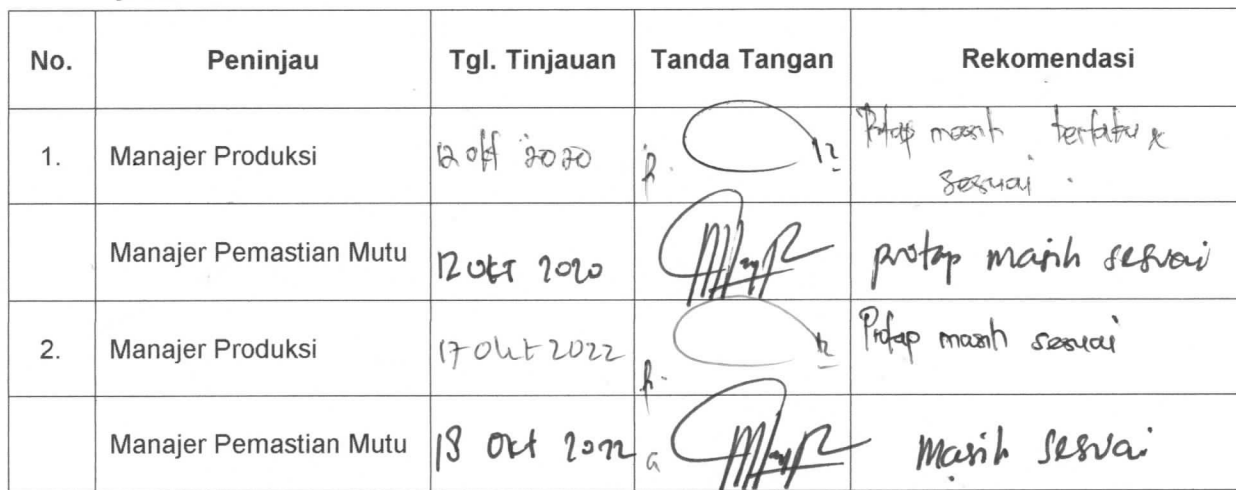 No. Peninjau Tgl. Tinjauan Tanda Tangan Rekomendasi
1. Manajer Produksi 12 okt 2020 Protap masih
sesuai.
Manajer Pemastian Mutu 12 okt 2020 protap masih sesuai
2. Manajer Produksi 17 Okt 2022 Protap masih sesuai
Manajer Pemastian Mutu 18 Okt 2022 Masih sesuai